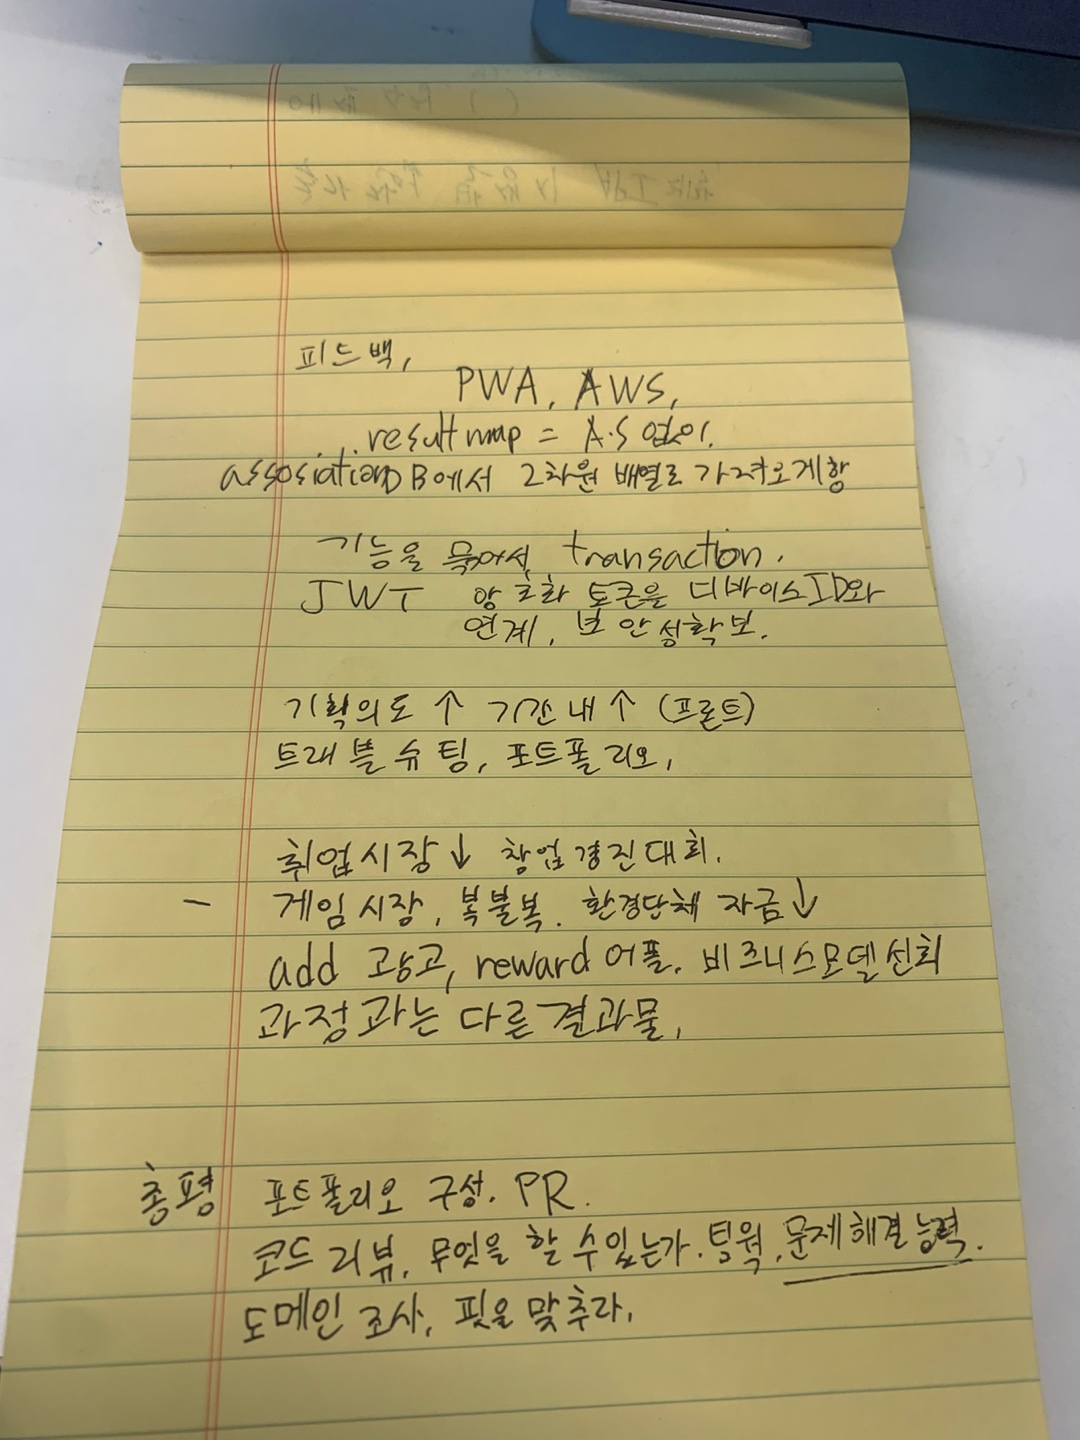 피드백,
PWA, AWS,
resultmap = A.S 없이.
assosiation DB에서 2차원 배열로 가져오게함
기능을 묶어서, transaction.
JWT 암호화 토큰을 디바이스ID와
연계, 보안성확보.
기획의도 ↑ 기간내 ↑ (프론트)
트래블슈팅, 포트폴리오,
취업시장 ↓ 창업경진대회.
- 게임시장, 복불복. 환경단체 자금 ↓
add 광고, reward 어플. 비즈니스모델선회
과정과는 다른결과물,
총평 포트폴리오 구성. PR.
코드 리뷰, 무엇을 할 수있는가. 팀웍, 문제해결능력.
도메인 조사, 핏을 맞추라,